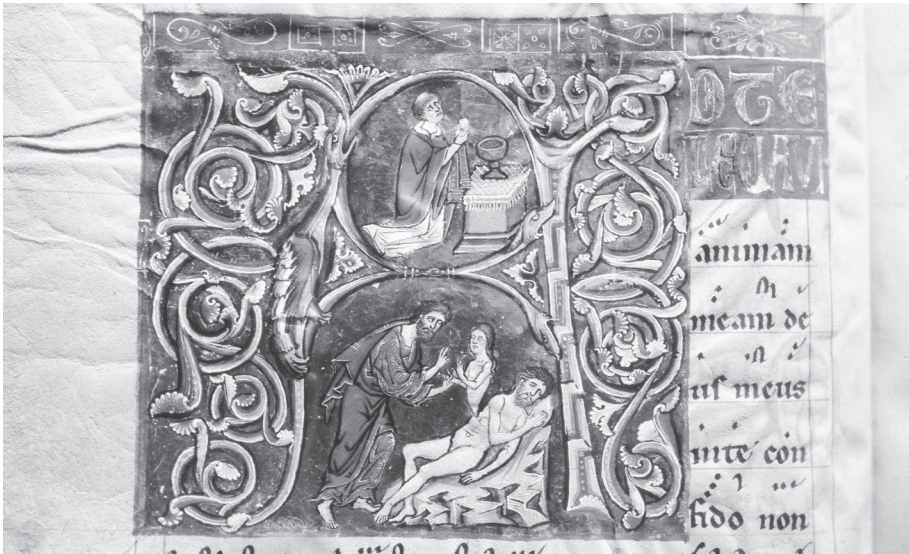 D TE
LEUAVI
animam
meam de
us meus
inte con
fido non